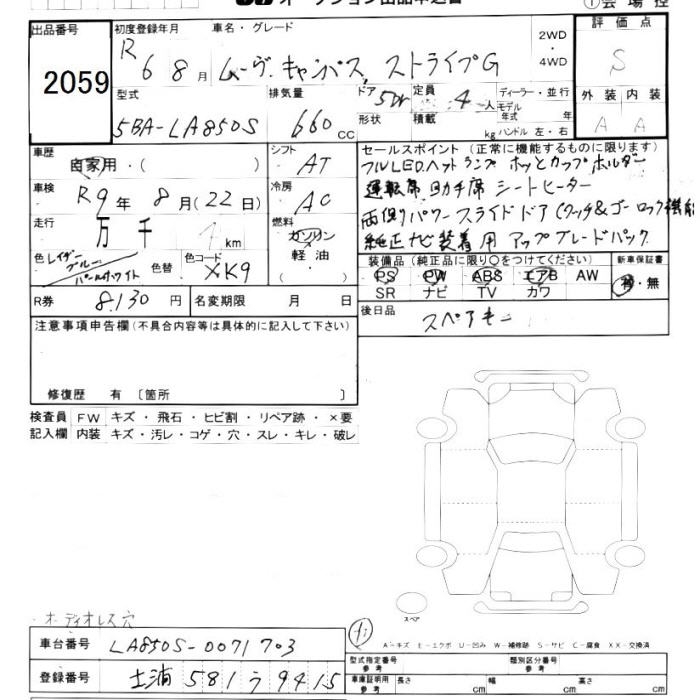 オークション出品申込書
①会場控
出品番号
2059
初度登録年月
R 6 8月
車名・グレード
ムーヴ キャンバス ストライプG
2WD・4WD
評価点
S
外装 内装
A A
型式
5BA-LA850S
排気量
660 CC
ドア 5Dr
形状
定員 4人
積載 kg
ディーラー・並行
モデル年式 年
ハンドル 左・右
車歴
自家用・( )
シフト
AT
車検
R9年 8月(22日)
冷房
AC
走行
万 千 1 km
燃料
ガソリン
軽油
・( )
色 レイザーブルー
パールホワイト
色替
色コード
XK9
R券 8,130円
名変期限 月 日
セールスポイント(正常に機能するものに限ります)
フルLEDヘットランプ ホッとカップホルダー
運転席 助手席 シートヒーター
両側パワースライドドア(タッチ&ゴーロック機能
純正ナビ装着用アップグレードパック
装備品(純正品に限り○をつけてください)
PS PW ABS エアB AW
SR ナビ TV カワ
新車保証書
有・無
後日品
スペアキー
注意事項申告欄(不具合内容等は具体的に記入して下さい)
修復歴 有 〔箇所 〕
検査員記入欄
FW キズ・飛石・ヒビ割・リペア跡・×要
内装 キズ・汚レ・コゲ・穴・スレ・キレ・破レ
オーディオレス穴
スペア
A-キズ E-エクボ U-凹み W-補修跡 S-サビ C-腐食 XX-交換済
車台番号
LA850S-0071703
登録番号
土浦 581 う 9415
型式指定番号 参考
類別区分番号 参考
車庫証明用 参考
長さ cm 幅 cm 高さ cm